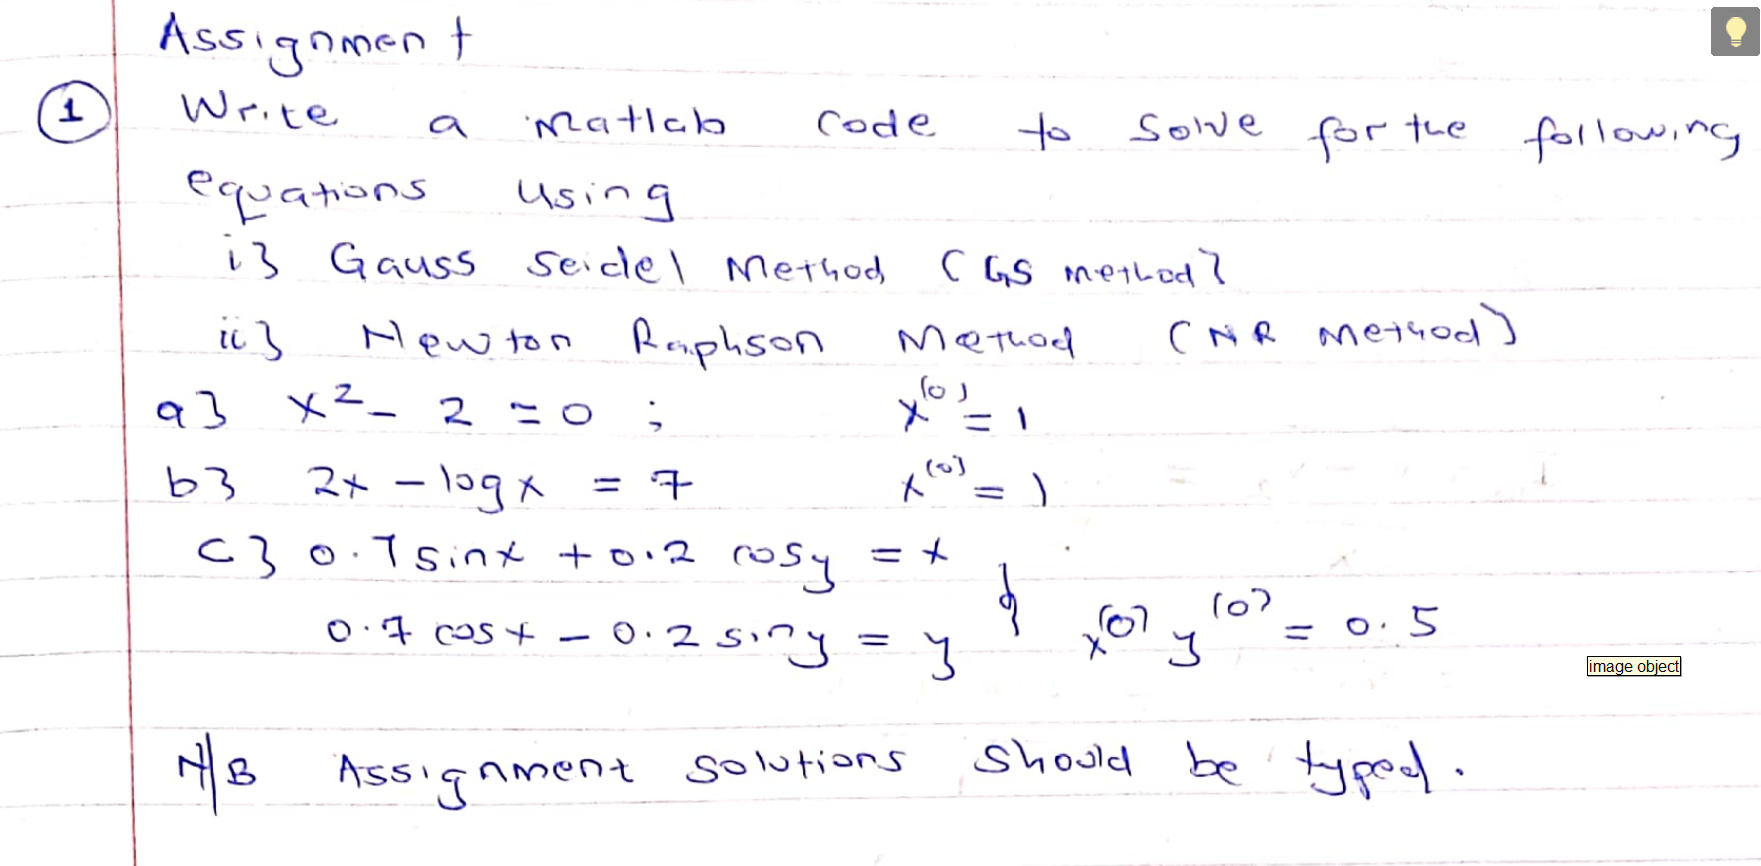 Assignment
① Write a Matlab code to solve for the following
equations using
i} Gauss Seidel Method (GS method)
ii} Newton Raphson Method (NR Method)
a} x² - 2 = 0 ; x⁽⁰⁾ = 1
b} 2x - log x = 7 x⁽⁰⁾ = 1
c} 0.7 sin x + 0.2 cos y = x
0.7 cos x - 0.2 sin y = y } x⁽⁰⁾ y⁽⁰⁾ = 0.5
image object
N/B Assignment solutions should be typed.